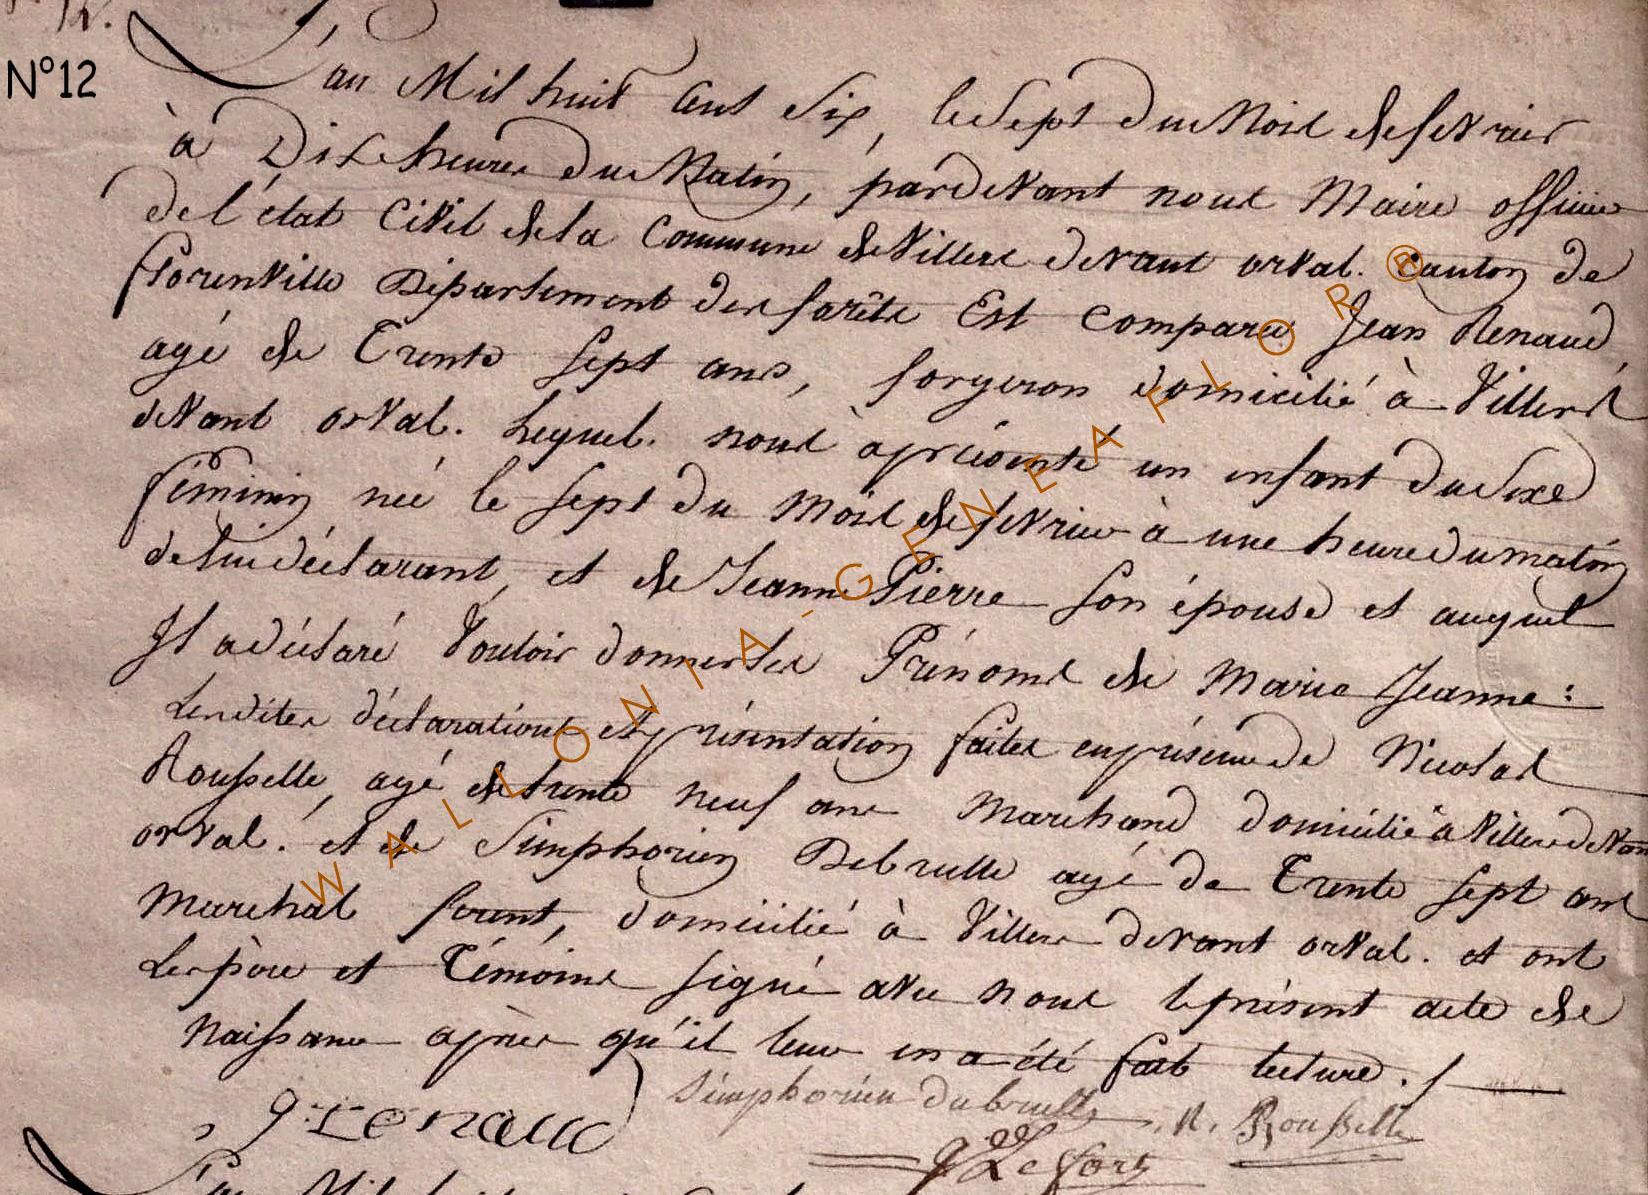 N°12
L'an Mil huit Cent Six, le Sept du Mois de fevrier
à Dix heures du Matin, pardevant nous Maire officier
de l'état Civil de la Commune de Villers devant orval. Canton de
florenville Département des forêts Est Comparu Jean Renaud
agé de Trente Sept ans, forgeron domicilié à Villers
devant orval. Lequel. nous à présenté un enfant du Sexe
féminin née le Sept du Mois de fevrier à une heure du matin
de lui déclarant, et de Jeanne Pierre Son épouse et auquel
Il a déclaré Vouloir donner les Prénoms de Marie Jeanne :
Lesdites déclarations et présentation faites en présence de Nicolas
Rousselle, agé de trente neuf ans Marchand domicilié à Villers devant
orval. et de Simphorien Debrulle agé de Trente Sept ans
Marchal ferant, domicilié à Villers devant orval. et ont
Les père et Témoins signé avec nous le présent acte de
Naissance après qu'il leur en a été fait lecture. /
J renaud
Simphorien dubrulle
N. Rousselle
J Lefort
L'an Mil
WALLONIA-GENEAFLOR®